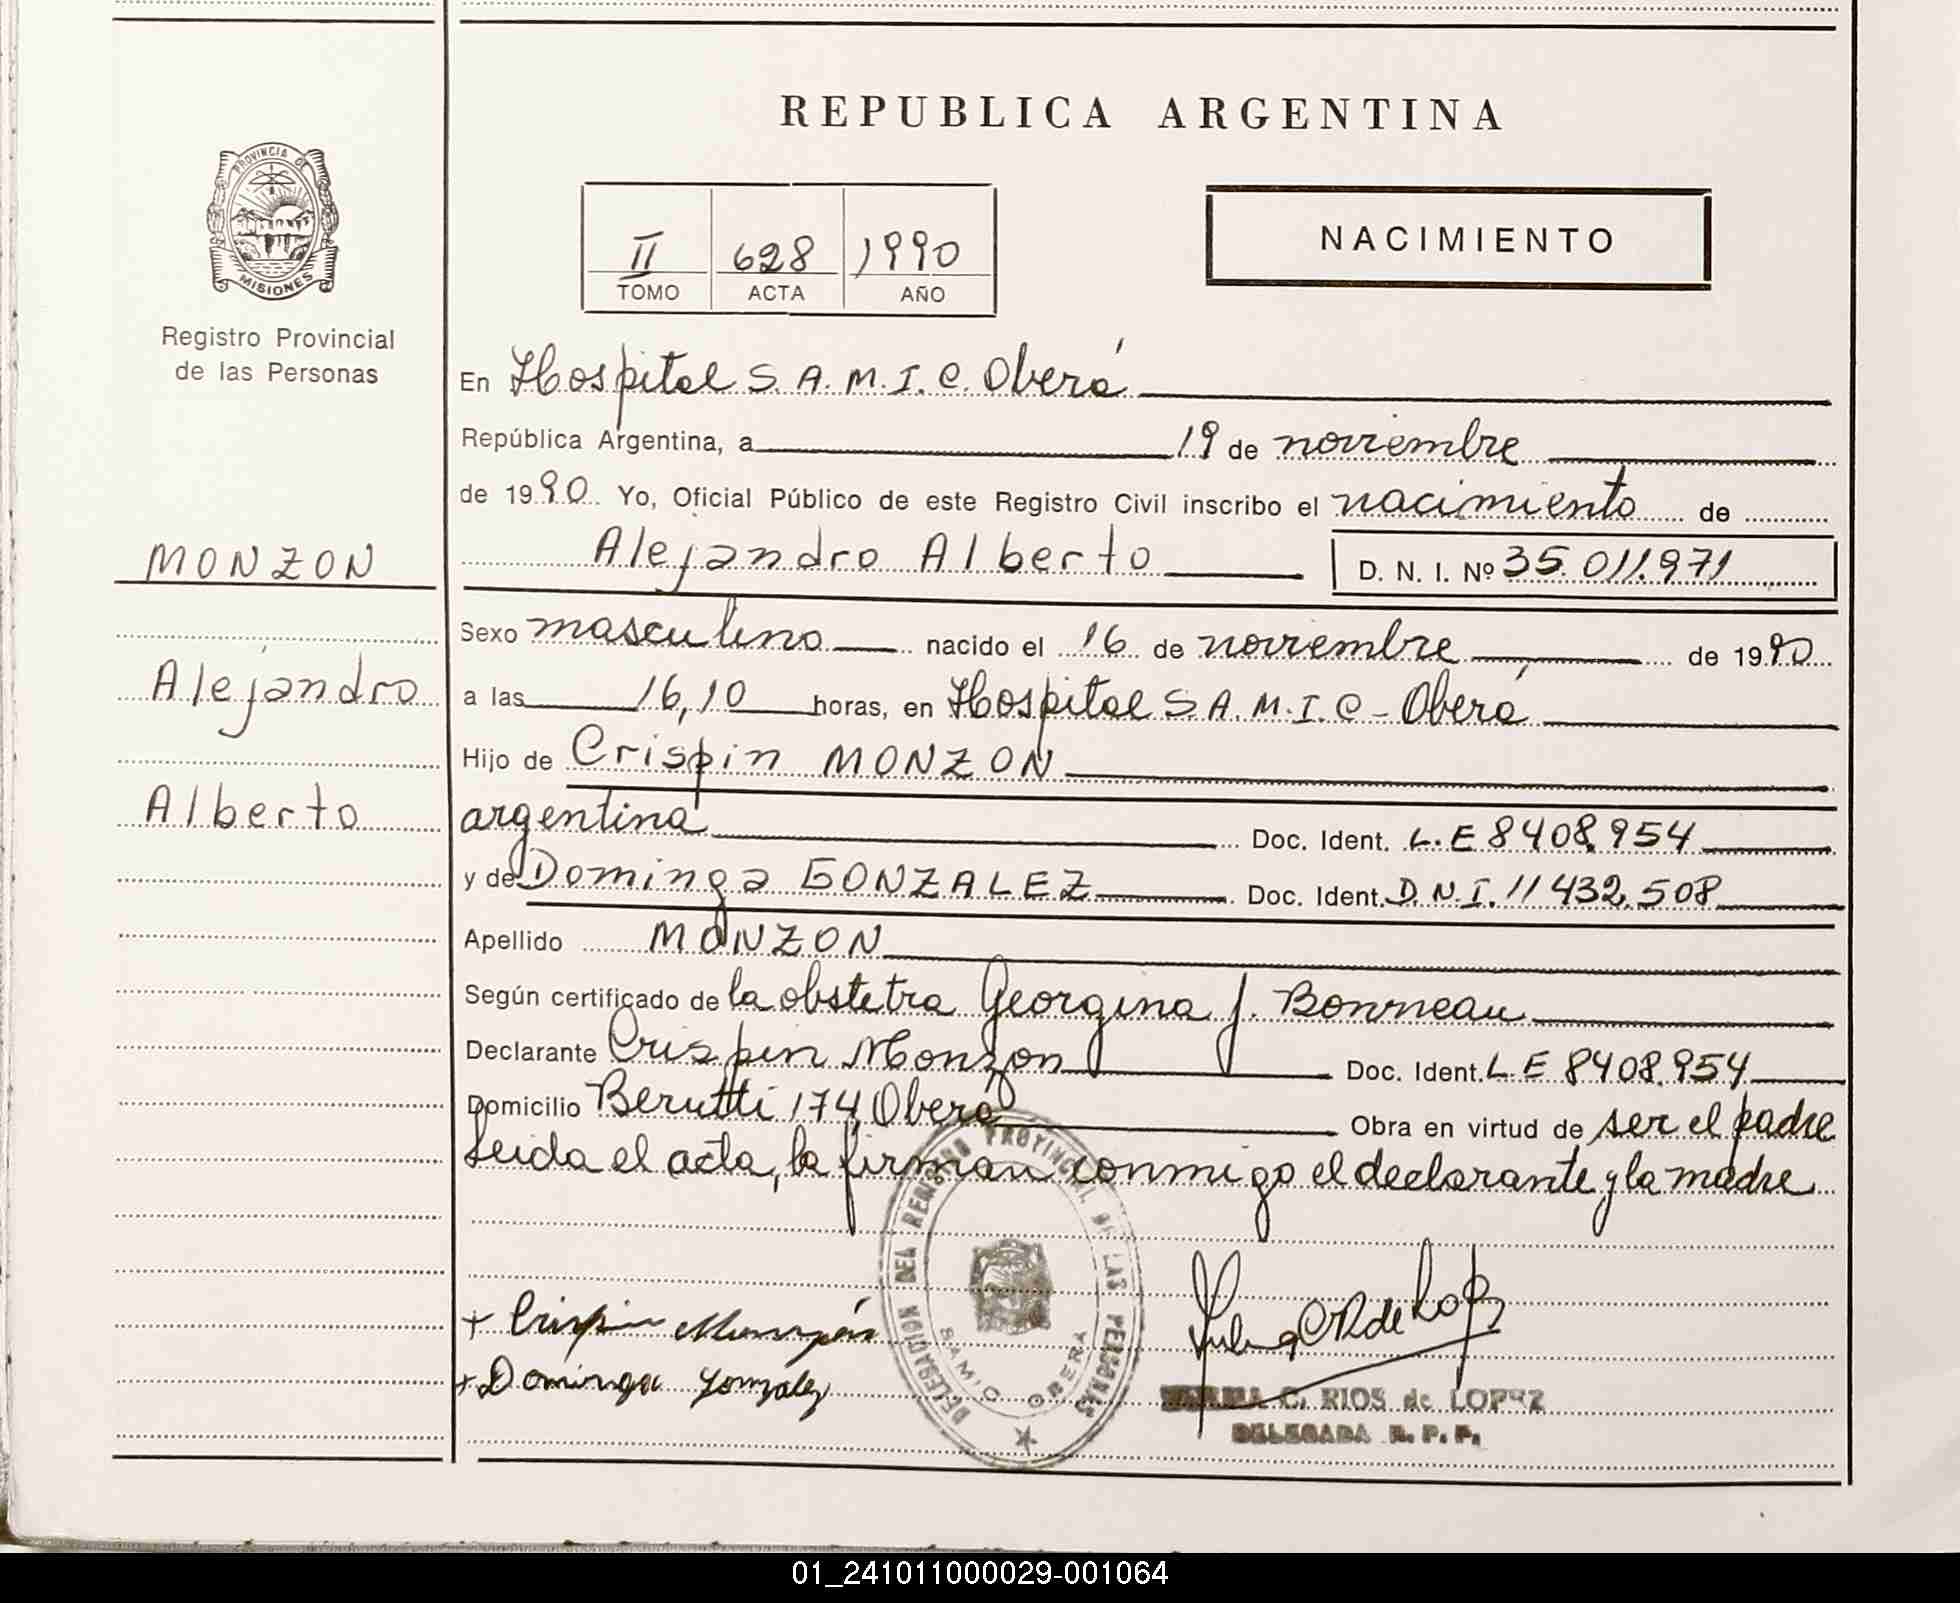 REPUBLICA ARGENTINA
PROVINCIA DE
MISIONES
Registro Provincial
de las Personas
II 628 1990
TOMO ACTA AÑO
NACIMIENTO
En Hospital S.A.M.I.C. Oberá
República Argentina, a 19 de noviembre
de 1990 Yo, Oficial Público de este Registro Civil inscribo el nacimiento de
MONZON
Alejandro Alberto D. N. I. Nº 35.011.971
Sexo masculino nacido el 16 de noviembre de 1990
Alejandro
a las 16,10 horas, en Hospital S.A.M.I.C - Oberá
Hijo de Crispin MONZON
Alberto
argentina Doc. Ident. L.E 8408.954
y de Dominga GONZALEZ Doc. Ident. D.N.I. 11432.508
Apellido MONZON
Según certificado de la obstetra Georgina J. Bonneau
Declarante Crispin Monzon Doc. Ident. L.E 8408.954
Domicilio Berutti 174 Oberá Obra en virtud de ser el padre
Leida el acta, la firman conmigo el declarante y la madre
+ Crispin Monzón
+ Dominga Gonzalez
DELEGACION DEL PROVINCIAL DE LAS PERSONAS
SAMIC OBERA
C. RIOS de LOPEZ
DELEGADA R. P. P.
01_241011000029-001064